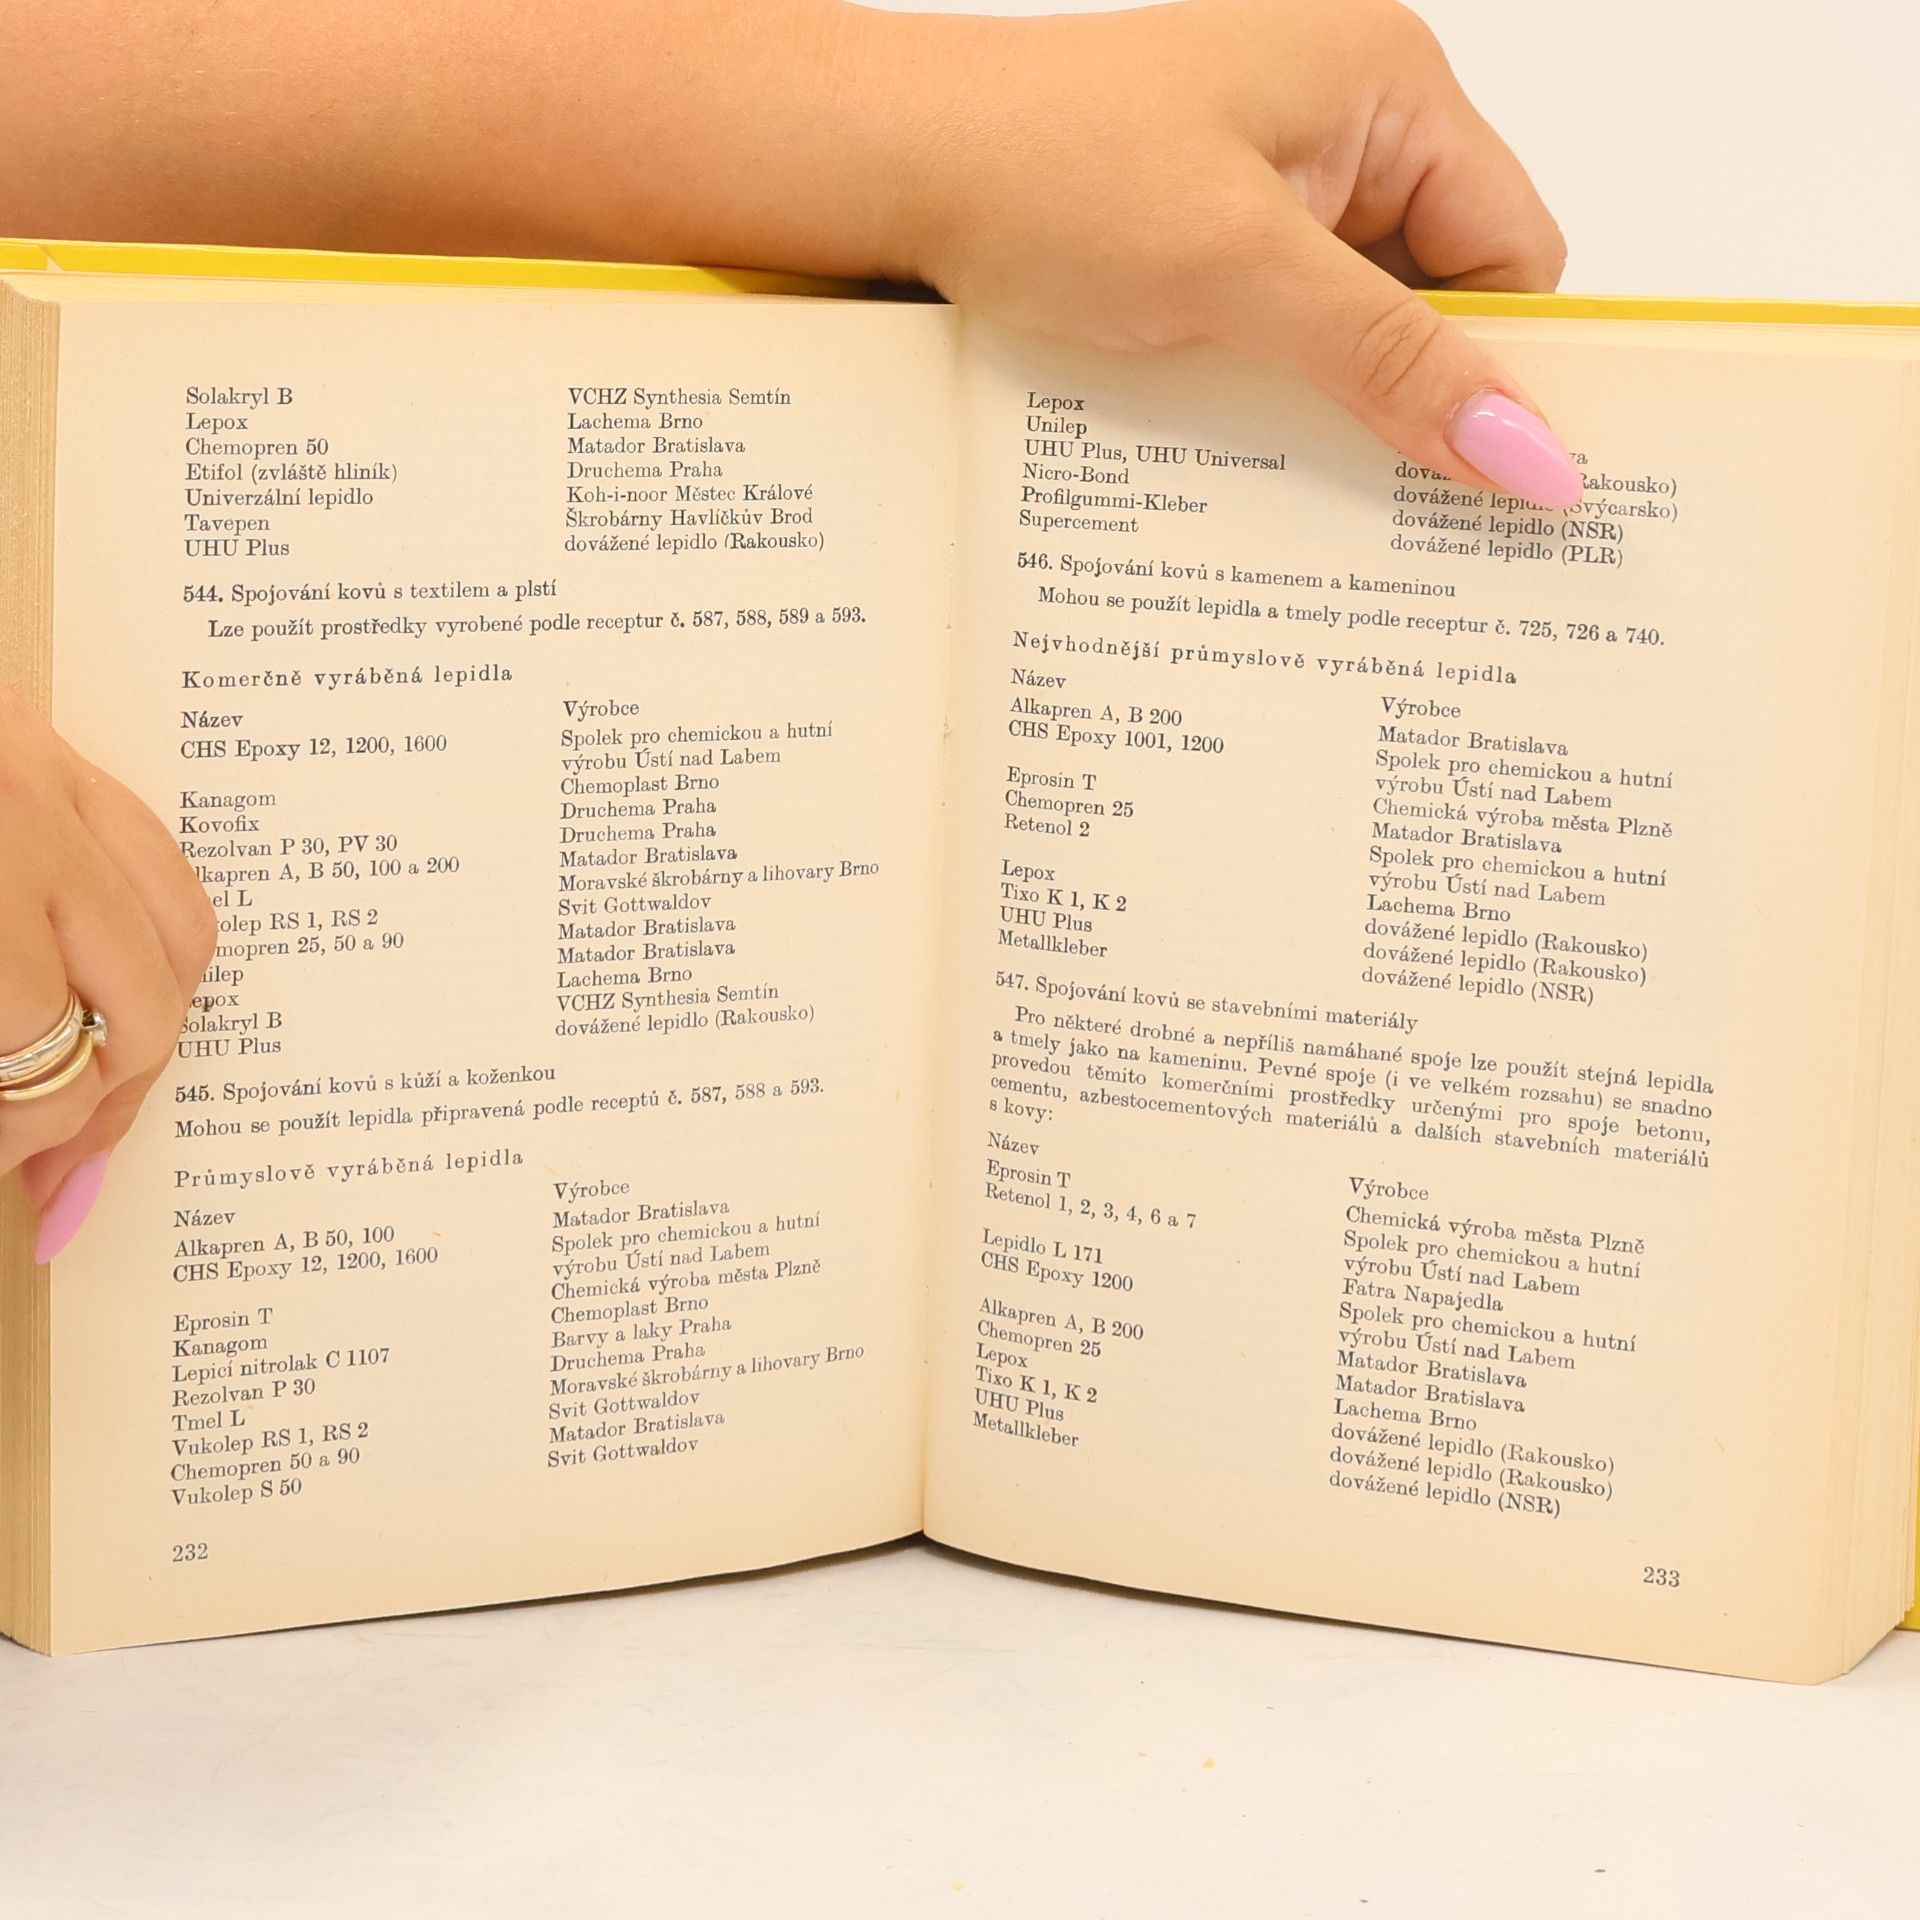 Solakryl B VCHZ Synthesia Semtín
Lepox Lachema Brno
Chemopren 50 Matador Bratislava
Etifol (zvláště hliník) Druchema Praha
Univerzální lepidlo Koh-i-noor Městec Králové
Tavepen Škrobárny Havlíčkův Brod
UHU Plus dovážené lepidlo (Rakousko)
544. Spojování kovů s textilem a plstí
Lze použít prostředky vyrobené podle receptur č. 587, 588, 589 a 593.
Komerčně vyráběná lepidla
Název Výrobce
CHS Epoxy 12, 1200, 1600 Spolek pro chemickou a hutní
výrobu Ústí nad Labem
Kanagom Chemoplast Brno
Kovofix Druchema Praha
Rezolvan P 30, PV 30 Druchema Praha
lkapren A, B 50, 100 a 200 Matador Bratislava
el L Moravské škrobárny a lihovary Brno
olep RS 1, RS 2 Svit Gottwaldov
mopren 25, 50 a 90 Matador Bratislava
nilep Matador Bratislava
epox Lachema Brno
Solakryl B VCHZ Synthesia Semtín
UHU Plus dovážené lepidlo (Rakousko)
545. Spojování kovů s kůží a koženkou
Mohou se použít lepidla připravená podle receptů č. 587, 588 a 593.
Průmyslově vyráběná lepidla
Název Výrobce
Alkapren A, B 50, 100 Matador Bratislava
CHS Epoxy 12, 1200, 1600 Spolek pro chemickou a hutní
výrobu Ústí nad Labem
Eprosin T Chemická výroba města Plzně
Kanagom Chemoplast Brno
Lepicí nitrolak C 1107 Barvy a laky Praha
Rezolvan P 30 Druchema Praha
Tmel L Moravské škrobárny a lihovary Brno
Vukolep RS 1, RS 2 Svit Gottwaldov
Chemopren 50 a 90 Matador Bratislava
Vukolep S 50 Svit Gottwaldov
232
Lepox
Unilep va
UHU Plus, UHU Universal Rakousko)
Nicro-Bond dovážené (Švýcarsko)
Profilgummi-Kleber dovážené lepidlo (NSR)
Supercement dovážené lepidlo (PLR)
546. Spojování kovů s kamenem a kameninou
Mohou se použít lepidla a tmely podle receptur č. 725, 726 a 740.
Nejvhodnější průmyslově vyráběná lepidla
Název Výrobce
Alkapren A, B 200 Matador Bratislava
CHS Epoxy 1001, 1200 Spolek pro chemickou a hutní
výrobu Ústí nad Labem
Eprosin T Chemická výroba města Plzně
Chemopren 25 Matador Bratislava
Retenol 2 Spolek pro chemickou a hutní
výrobu Ústí nad Labem
Lepox Lachema Brno
Tixo K 1, K 2 dovážené lepidlo (Rakousko)
UHU Plus dovážené lepidlo (Rakousko)
Metallkleber dovážené lepidlo (NSR)
547. Spojování kovů se stavebními materiály
Pro některé drobné a nepříliš namáhané spoje lze použít stejná lepidla
a tmely jako na kameninu. Pevné spoje (i ve velkém rozsahu) se snadno
provedou těmito komerčními prostředky určenými pro spoje betonu,
cementu, azbestocementových materiálů a dalších stavebních materiálů
s kovy:
Název Výrobce
Eprosin T Chemická výroba města Plzně
Retenol 1, 2, 3, 4, 6 a 7 Spolek pro chemickou a hutní
výrobu Ústí nad Labem
Lepidlo L 171 Fatra Napajedla
CHS Epoxy 1200 Spolek pro chemickou a hutní
výrobu Ústí nad Labem
Alkapren A, B 200 Matador Bratislava
Chemopren 25 Matador Bratislava
Lepox Lachema Brno
Tixo K 1, K 2 dovážené lepidlo (Rakousko)
UHU Plus dovážené lepidlo (Rakousko)
Metallkleber dovážené lepidlo (NSR)
233